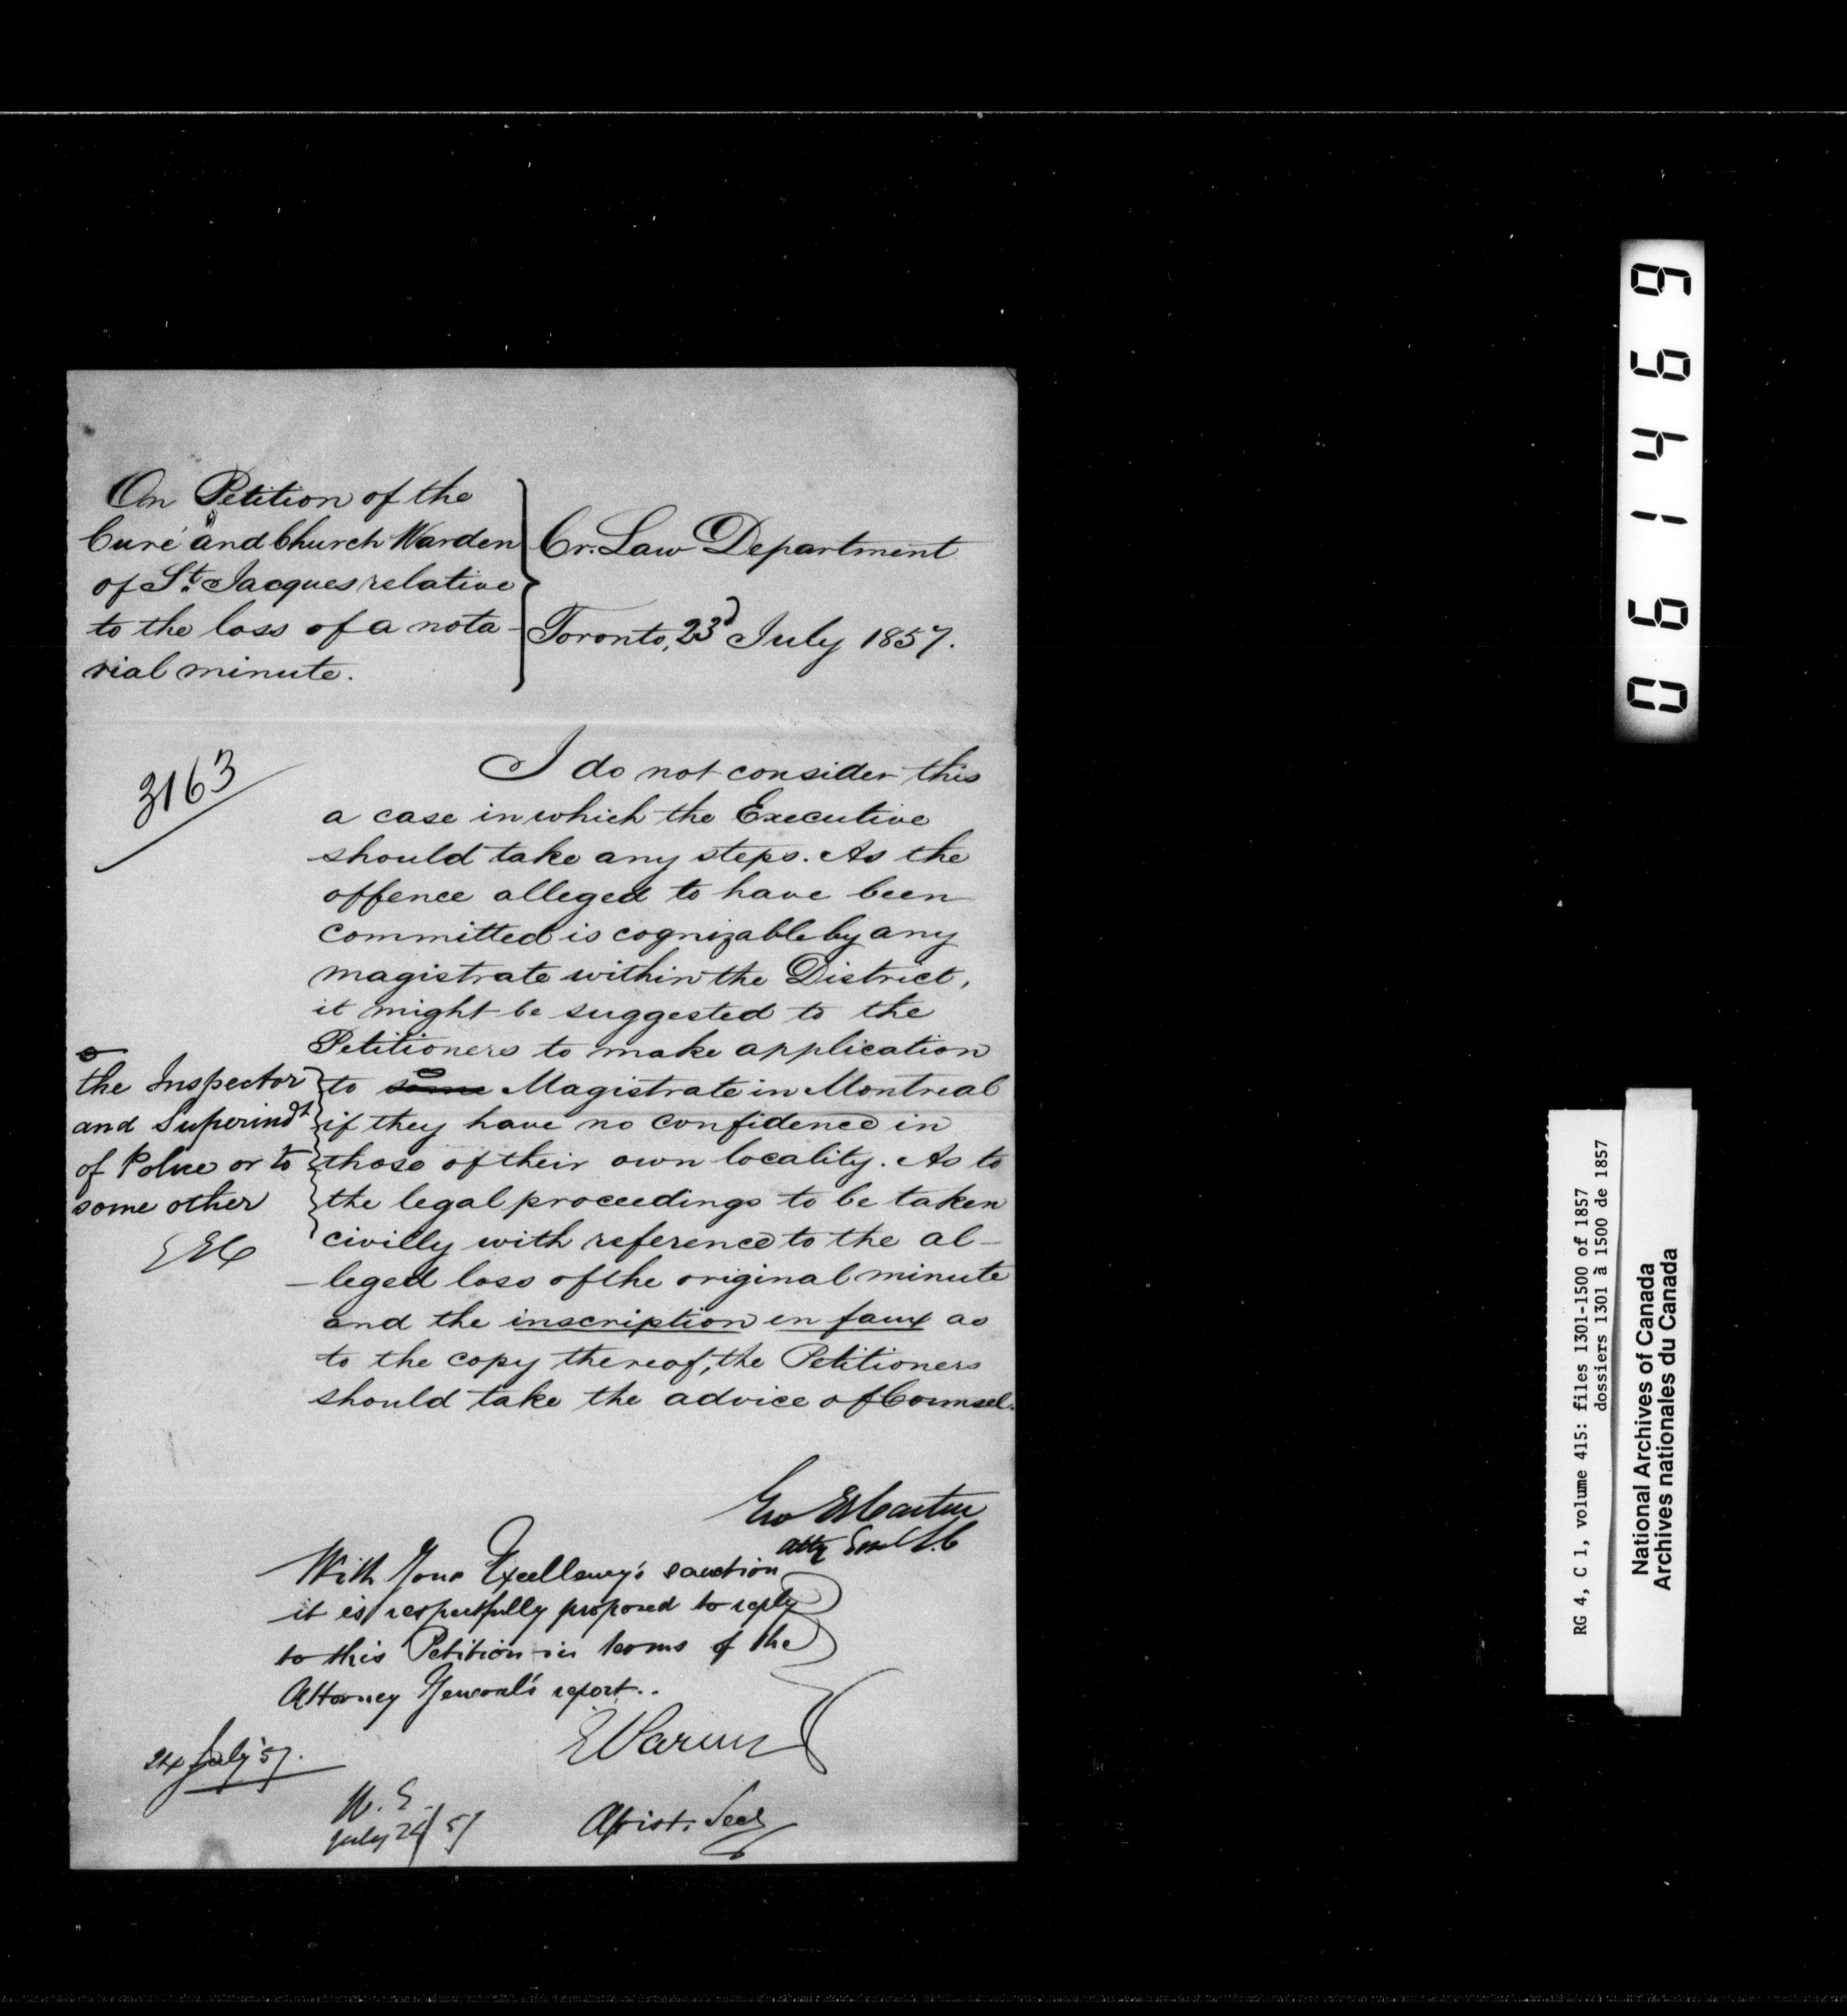 On Petition of the
Curé and Church Warden
of St. Jacques relative
to the loss of a nota-
rial minute.
Cr. Law Department
Toronto, 23d July 1857.
3163
I do not consider this
a case in which the Executive
should take any steps. As the
offence alleged to have been
committed is cognizable by any
magistrate within the District,
it might be suggested to the
Petitioners to make application
to some Magistrate in Montreal
if they have no confidence in
those of their own locality. As to
the legal proceedings to be taken
civilly with reference to the al-
-leged loss of the original minute
and the inscription en faux as
to the copy thereof, the Petitioners
should take the advice of Counsel.
the Inspector
and Superindt
of Police or to
some other
GEC
Geo E Cartier
Atty Genl L.C
With Your Excellency's sanction
it is respectfully proposed to reply
to this Petition in terms of the
Attorney General's report..
E Parent
24 July '57.
Assist. Secy
July 24/57
061469
RG 4, C 1, volume 415: files 1301-1500 of 1857
dossiers 1301 à 1500 de 1857
National Archives of Canada
Archives nationales du Canada